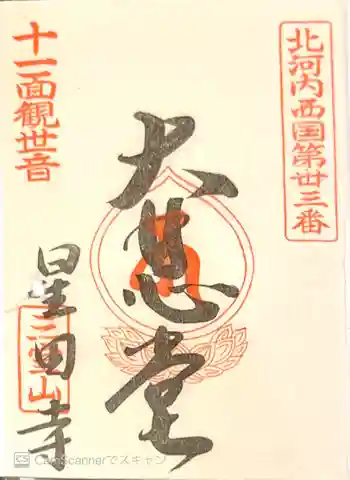 北河内西国第卅三番
十一面観世音
大悲堂
星田寺
CS CamScannerでスキャン